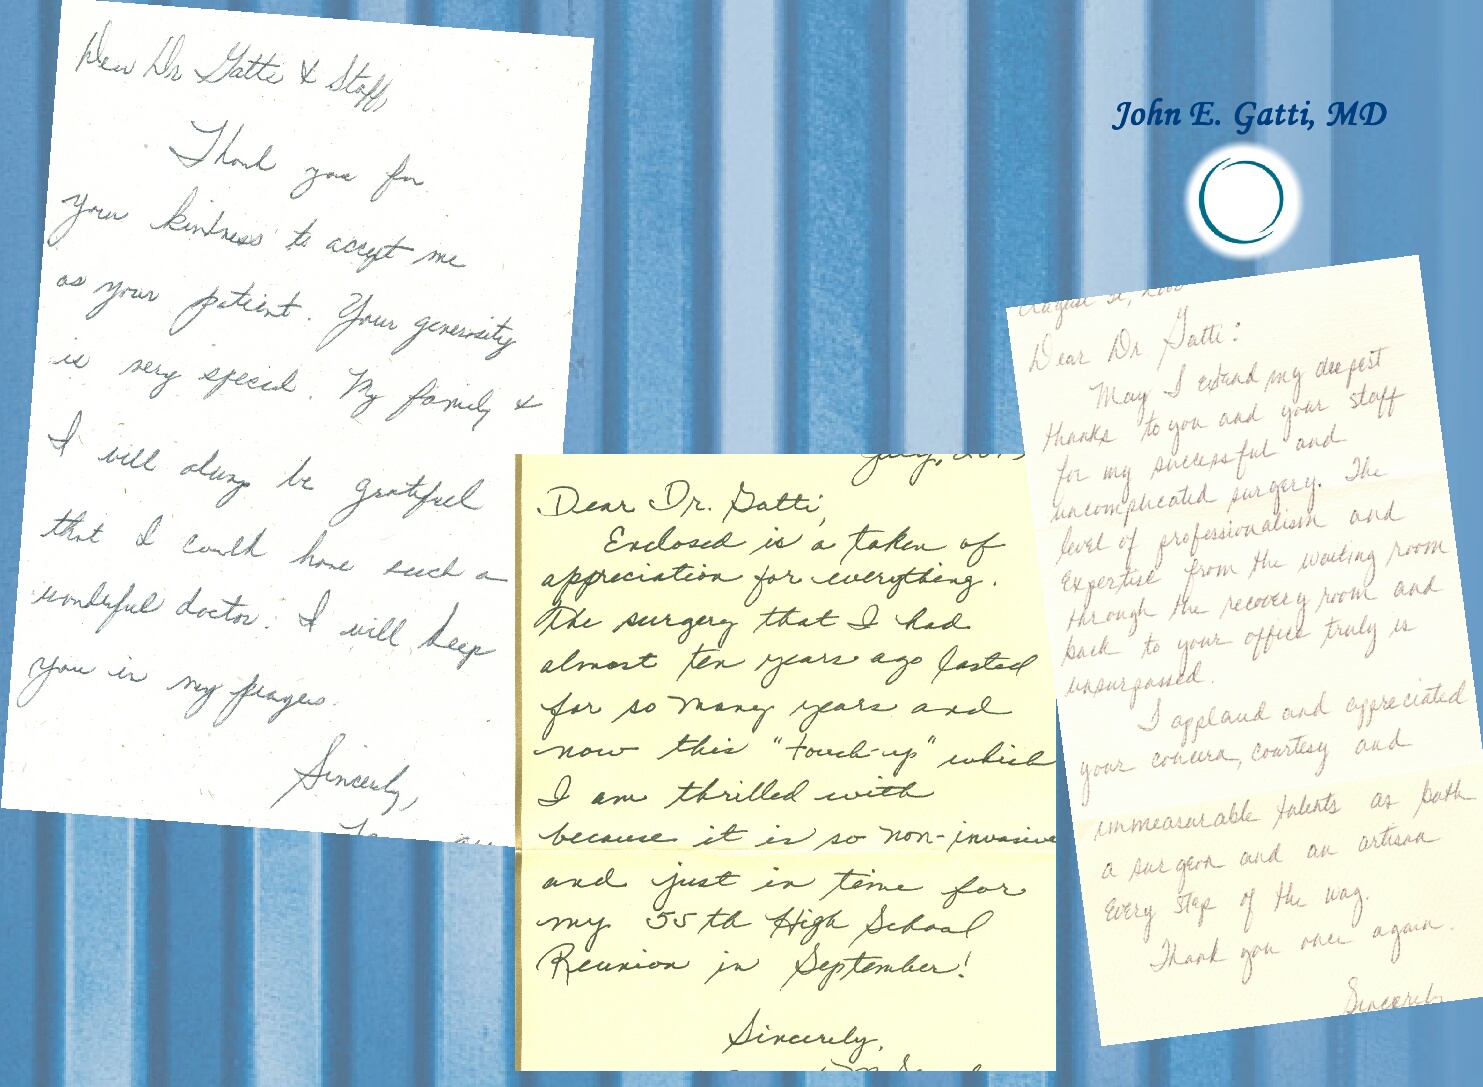 Dear Dr Gatti & Staff,
Thank you for
your kindness to accept me
as your patient. Your generosity
is very special. My family &
I will always be grateful
that I could have such a
wonderful doctor. I will keep
you in my prayers.
Sincerly,
John E. Gatti, MD
July, 2013
Dear Dr. Gatti,
Enclosed is a token of
appreciation for everything.
The surgery that I had
almost ten years ago lasted
for so many years and
now this "touch-up" which
I am thrilled with
because it is so non-invasive
and just in time for
my 55th High School
Reunion in September!
Sincerely,
August
Dear Dr Gatti:
May I extend my deepest
thanks to you and your staff
for my successful and
uncomplicated surgery. The
level of professionalism and
expertise from the waiting room
through the recovery room and
back to your office truly is
unsurpassed.
I applaud and appreciated
your concern, courtesy and
immeasurable talents as both
a surgeon and an artisan
every step of the way.
Thank you once again.
Sincerely